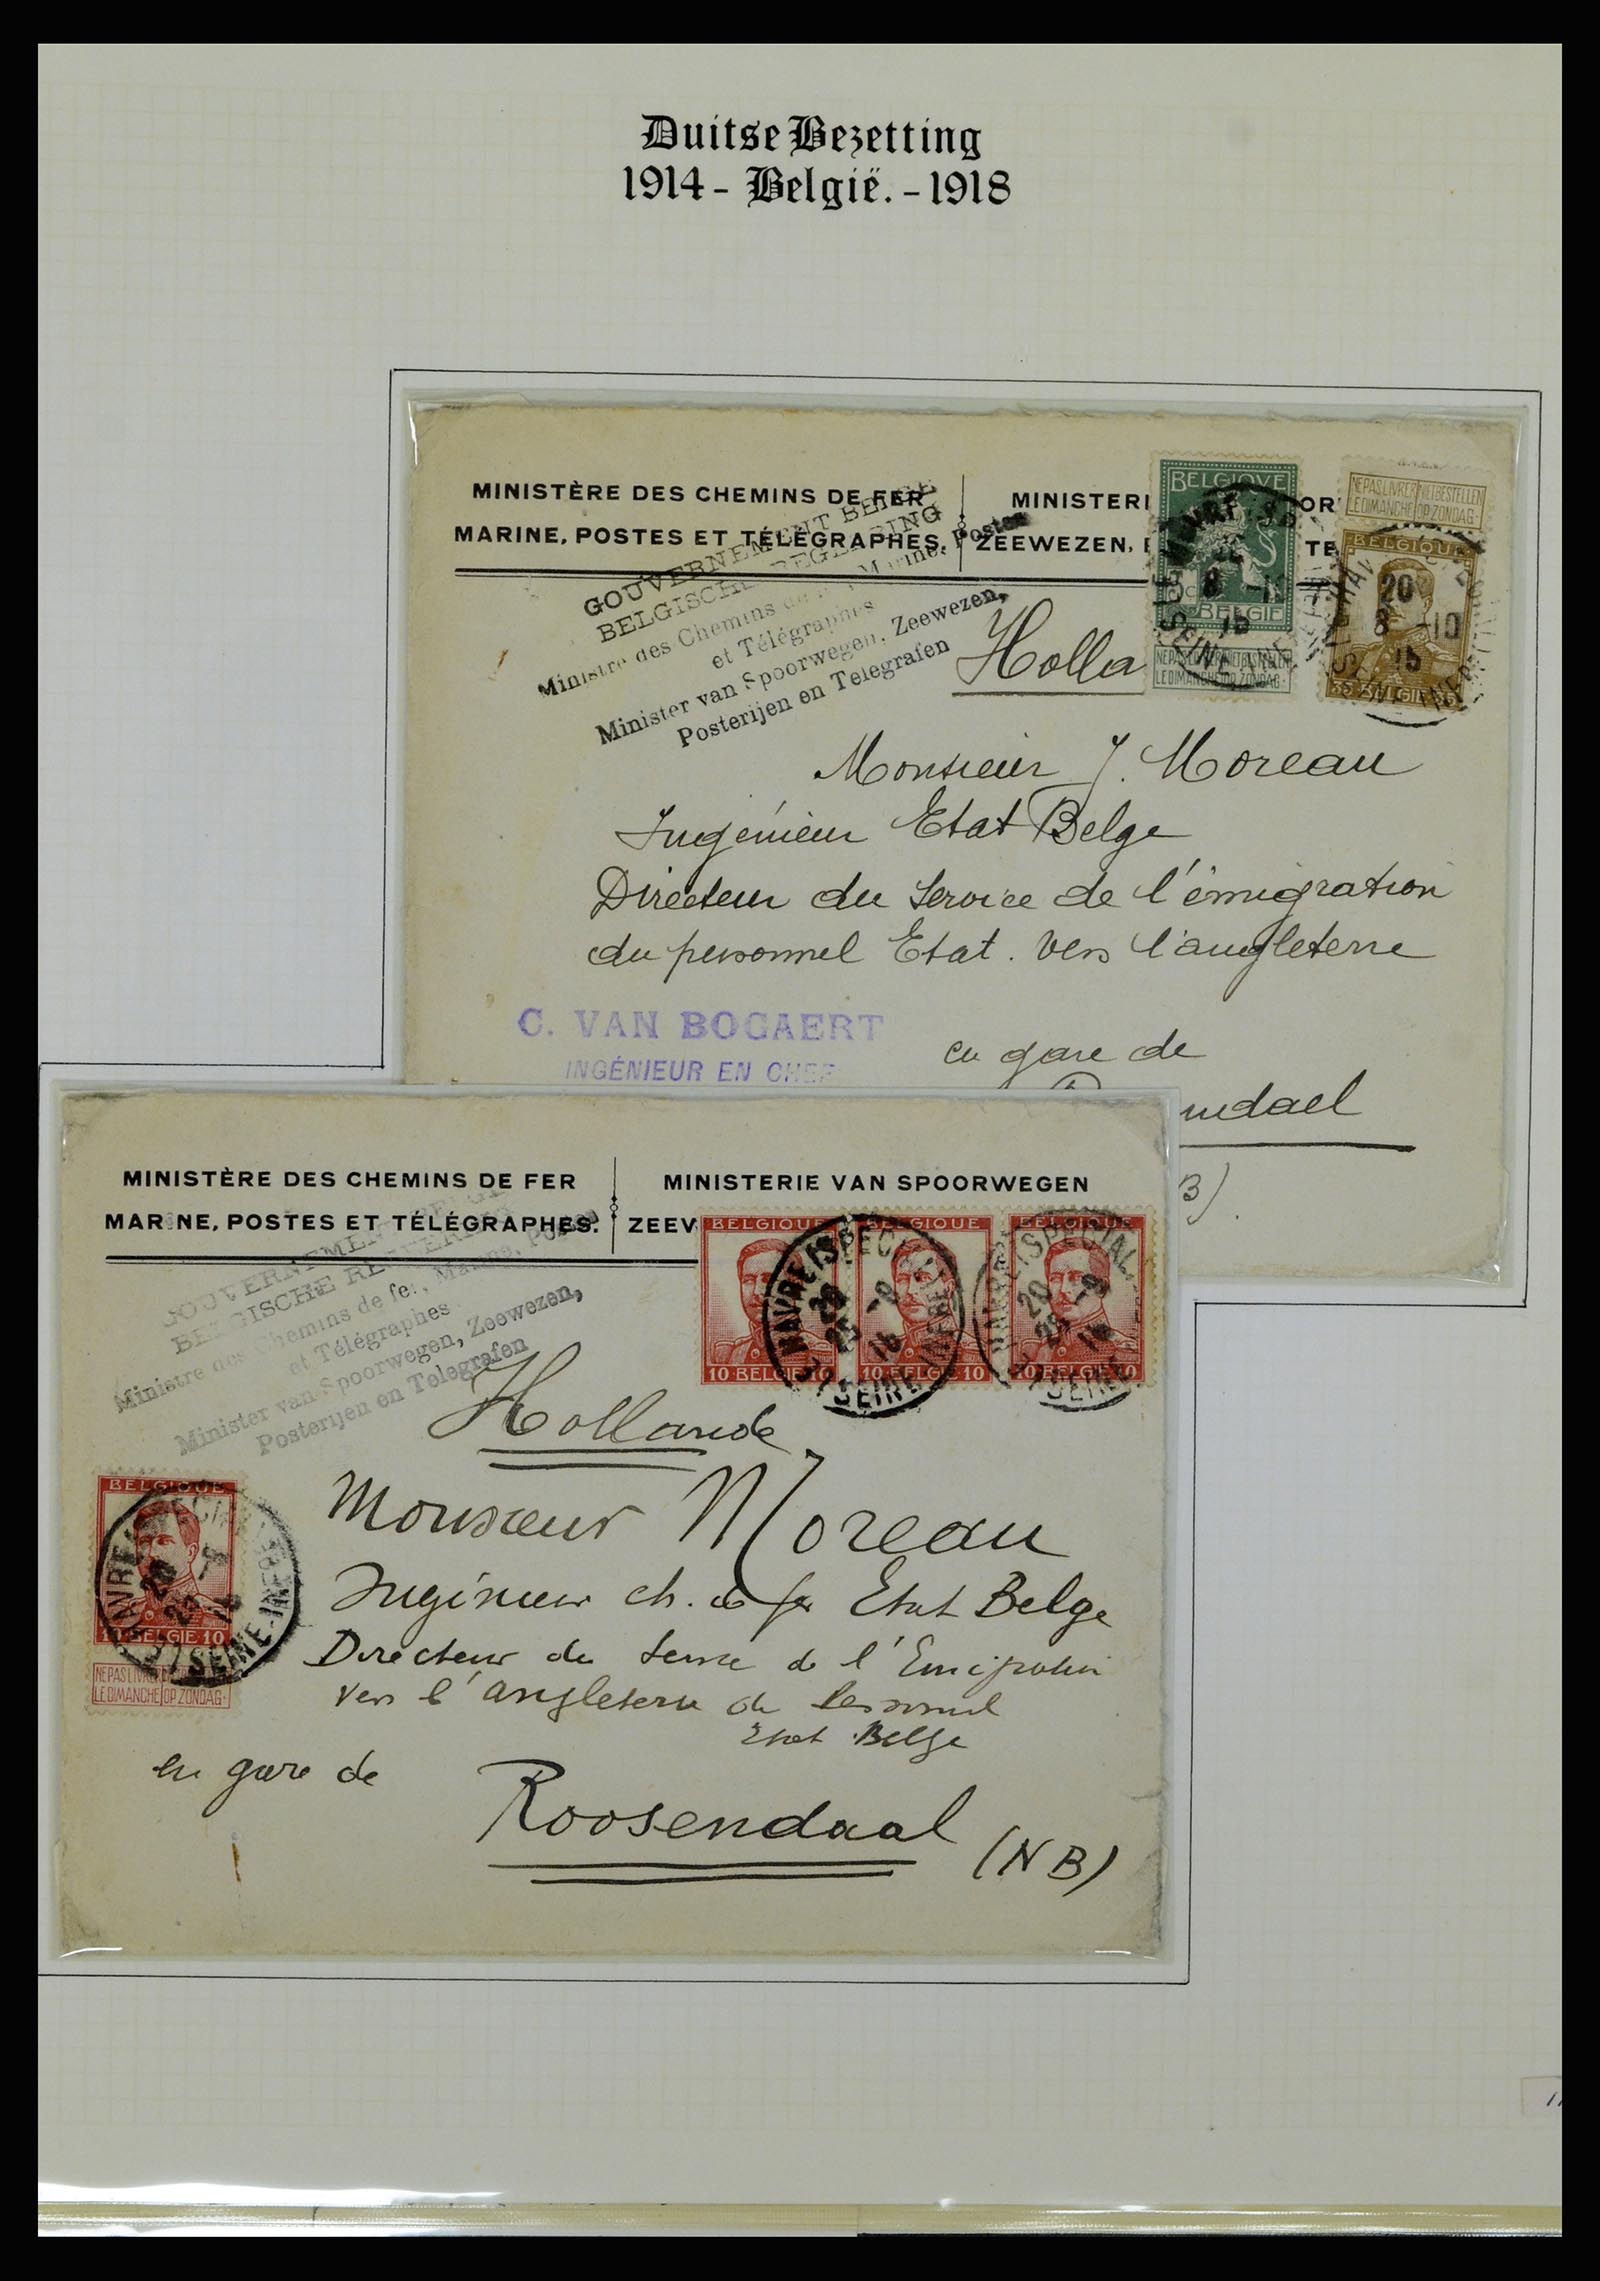 Duitse Bezetting
1914 - België. - 1918
MINISTÈRE DES CHEMINS DE FER
MARINE, POSTES ET TÉLÉGRAPHES.
MINISTERI
ZEEWEZEN,
GOUVERNEMENT BELGE
BELGISCHE REGEERING
Ministre des Chemins de fer, Marine, Postes
et Télégraphes
Minister van Spoorwegen, Zeewezen,
Posterijen en Telegrafen
BELGIQUE
BELGIE
NE PAS LIVRER NIET BESTELLEN
LE DIMANCHE OP ZONDAG
NE PAS LIVRER NIET BESTELLEN
LE DIMANCHE OP ZONDAG
BELGIQUE
20
8 -10
15
35 BELGIE 35
Holla
Monsieur J. Moreau
Ingénieur Etat Belge
Directeur du Service de l'émigration
du personnel Etat. vers l'angleterre
C. VAN BOGAERT
INGÉNIEUR EN CHEF
en gare de
endael
B).
MINISTÈRE DES CHEMINS DE FER
MARINE, POSTES ET TÉLÉGRAPHES.
MINISTERIE VAN SPOORWEGEN
ZEEW
GOUVERNEMENT BELGE
BELGISCHE REGEERING
Ministre des Chemins de fer, Marine, Postes
et Télégraphes
Minister van Spoorwegen, Zeewezen,
Posterijen en Telegrafen
BELGIQUE BELGIQUE BELGIQUE
10 BELGIE 10 10 BELGIE 10 10 BELGIE 10
LE HAVRE (SPECIAL)
SEINE-INFRE
Hollande
BELGIQUE
10 BELGIE 10
NE PAS LIVRER
LE DIMANCHE OP ZONDAG
Monsieur Moreau
Ingénieur ch. de fer Etat Belge
Directeur du Service de l'Emigration
vers l'angleterre du Personnel
Etat Belge
en gare de
Roosendaal
(NB)